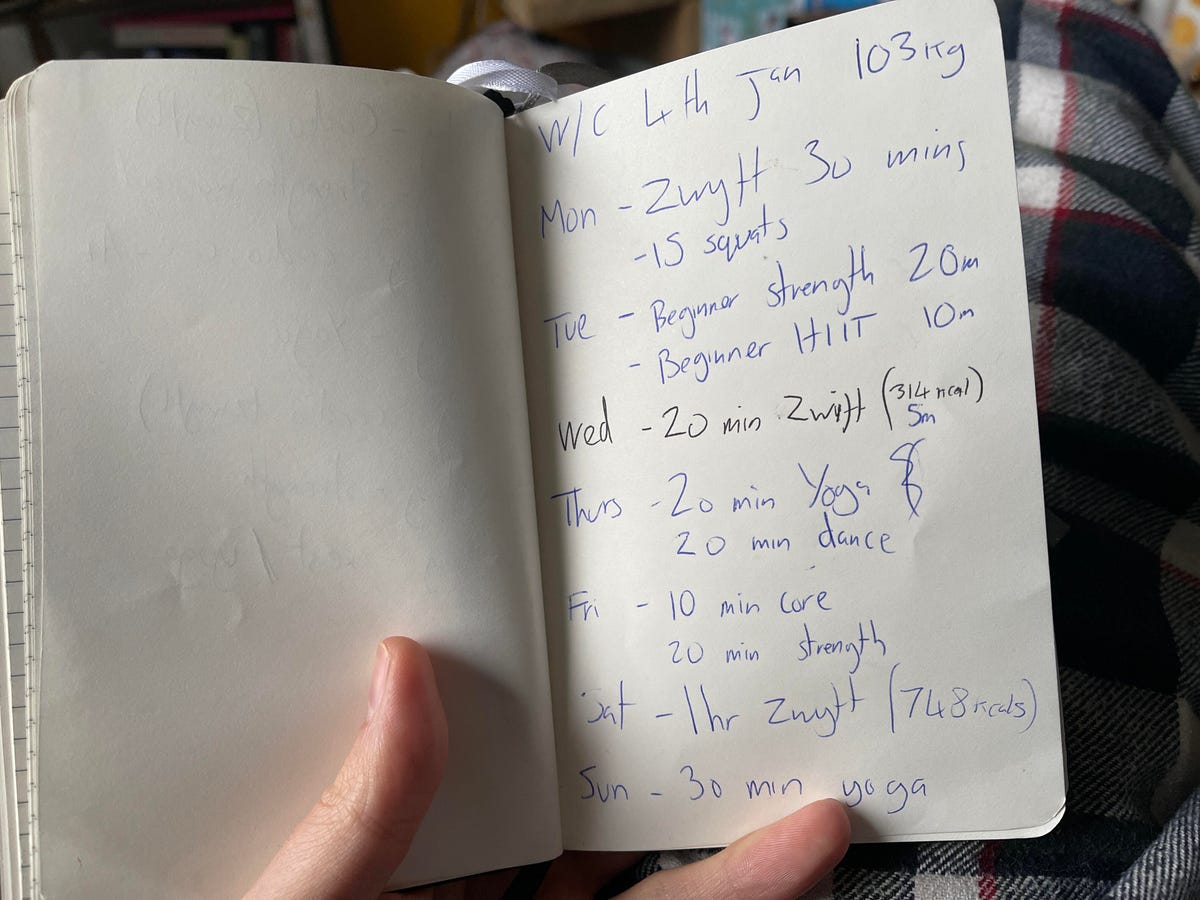 W/C 4th Jan 103kg
Mon - Zwyft 30 mins
- 15 squats
Tue - Beginner strength 20m
- Beginner HIIT 10m
Wed - 20 min Zwift (314kcal)
5m
Thurs - 20 min Yoga &
20 min dance
Fri - 10 min core
20 min strength
Sat - 1hr Zwyft (748kcals)
Sun - 30 min yoga